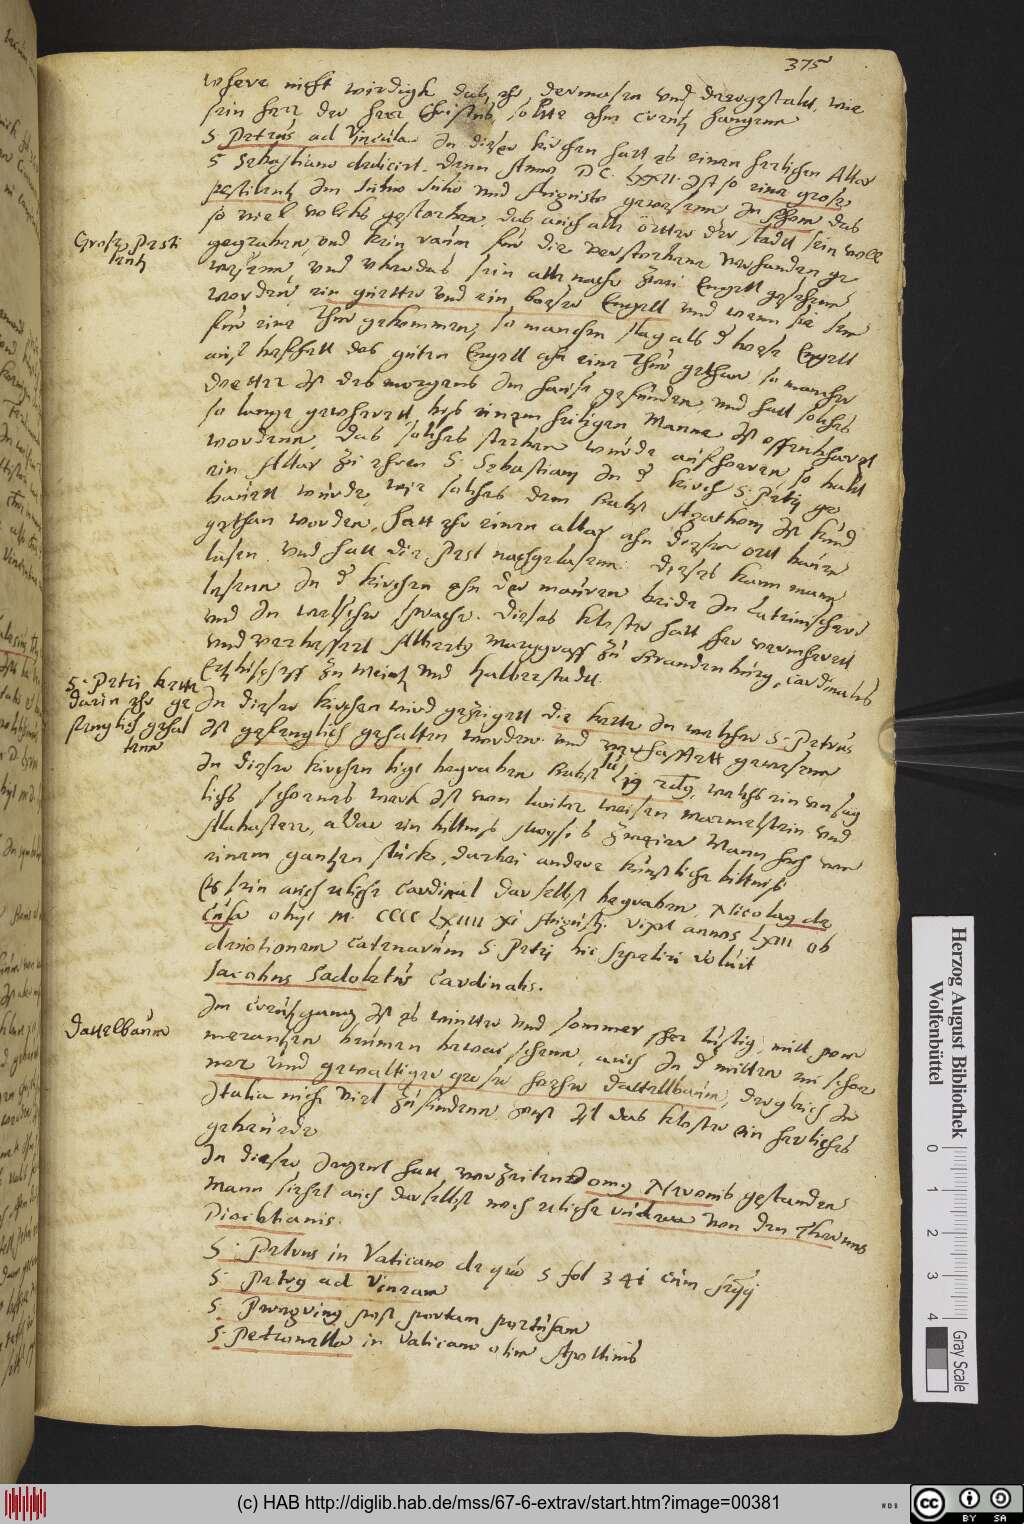 375
where nicht wirdigk das ehr dermasen und dergestalt, wie
sein herr der herr Christus, solte ahm Creutz hangenn
S Petrus ad Vincula In dieser kirchen hatt es einen herlichen Altar
S Sebastiano dedicirt. dann Anno DC LXXII. Ist so eine grose
pestilentz Im Julio und Augusto gewesenn In Rhom das
so viel volcks gestorben, das auch alle örtter der stadt sein voll
Grose Pesti
lentz
gegraben, und kein raum für die verstorbene verhanden ge
wesenn, und uber das sein alle nacht zwei Engell gesehenn
worden, ein guetter und ein boeser Engell und wenn sie sein
für eine Thür gekommen, so manchen schlag als der boese Engell
auf befehll des guten Engell ahn eine Thür gethan so mancher
doetter Ist des morgens Im hause gefunden, und hatt solches
so lange gewherett, bis einem heiligen Manne Ist offenbharet
wordenn, das solches sterben würde aufhoeren, so baldt
ein Altar zu ehren S. Sebastiani In der kirch S. Petri ge
bauett würde, wie solches dem Babst Agathoni Ist kund
gethan worden, hatt ehr einen altar ahn diesen ort bauen
lasen und hatt die Pest nachgelasenn. dieses kann mann
lesenn In der kirchen ahn der mauren beide In Lateinischer
und In welscher sprache. dieses kloster hatt sher vermherett
und verbessert Albertus Marggraff zu Brandenburg, Cardinalis
Ertzbischoff zu Meintz und Halberstadt.
S. Petri kette
darin ehr ge
fenglich gehal
tenn
In dieser kirchen wird gezeigett die kette In welcher S. Petrus
Ist gefenglich gehalten worden und verhafftett gewesenn
In dieser kirchen ligt begraben Babst Julius 2dus, welchs ein
lichs schoenes werk Ist von lauter weisen Marmelstein und
Alabaster, aldar ein biltnis Moysis zweier Mann hoch von
einem gantzen stücke, darbei andere künstliche biltnis
Es sein auch etliche Cardinal darselbst begraben, Nicolaus de
Cusa obijt M. CCCC LXIIII XI Augusti. vixit annos LXIII ob
deuotionem catenarum S. Petri hic sepeliri voluit
Jacobus Sadoletus Cardinalis.
Dattelbaum
Im Creutzgang Ist es winter und sommer sher lustig, mitt pome
merantzen beumen bewachsenn, auch In der mitten ein schoe
ner und gewaltiger groser hoeher dattellbaum, dergleich In
Italia nicht viel zu findenn sonst Ist das kloster ein herliches
gebeuede
In dieser Jegent hatt vorzeiten Domus Neronis gestanden
Mann siehet auch darselbst noch etliche rudera von den Thermis
Diocletianis.
S. Petrus in Vaticano de quo S fol 341 cum seqq
S. Petrus ad Vineam
S. post portam portusam
S. Petronella in Vaticano olim Apollinis
Herzog August Bibliothek
Wolfenbüttel
0 1 2 3 4
Gray Scale
(c) HAB http://diglib.hab.de/mss/67-6-extrav/start.htm?image=00381
WDB
CC BY SA